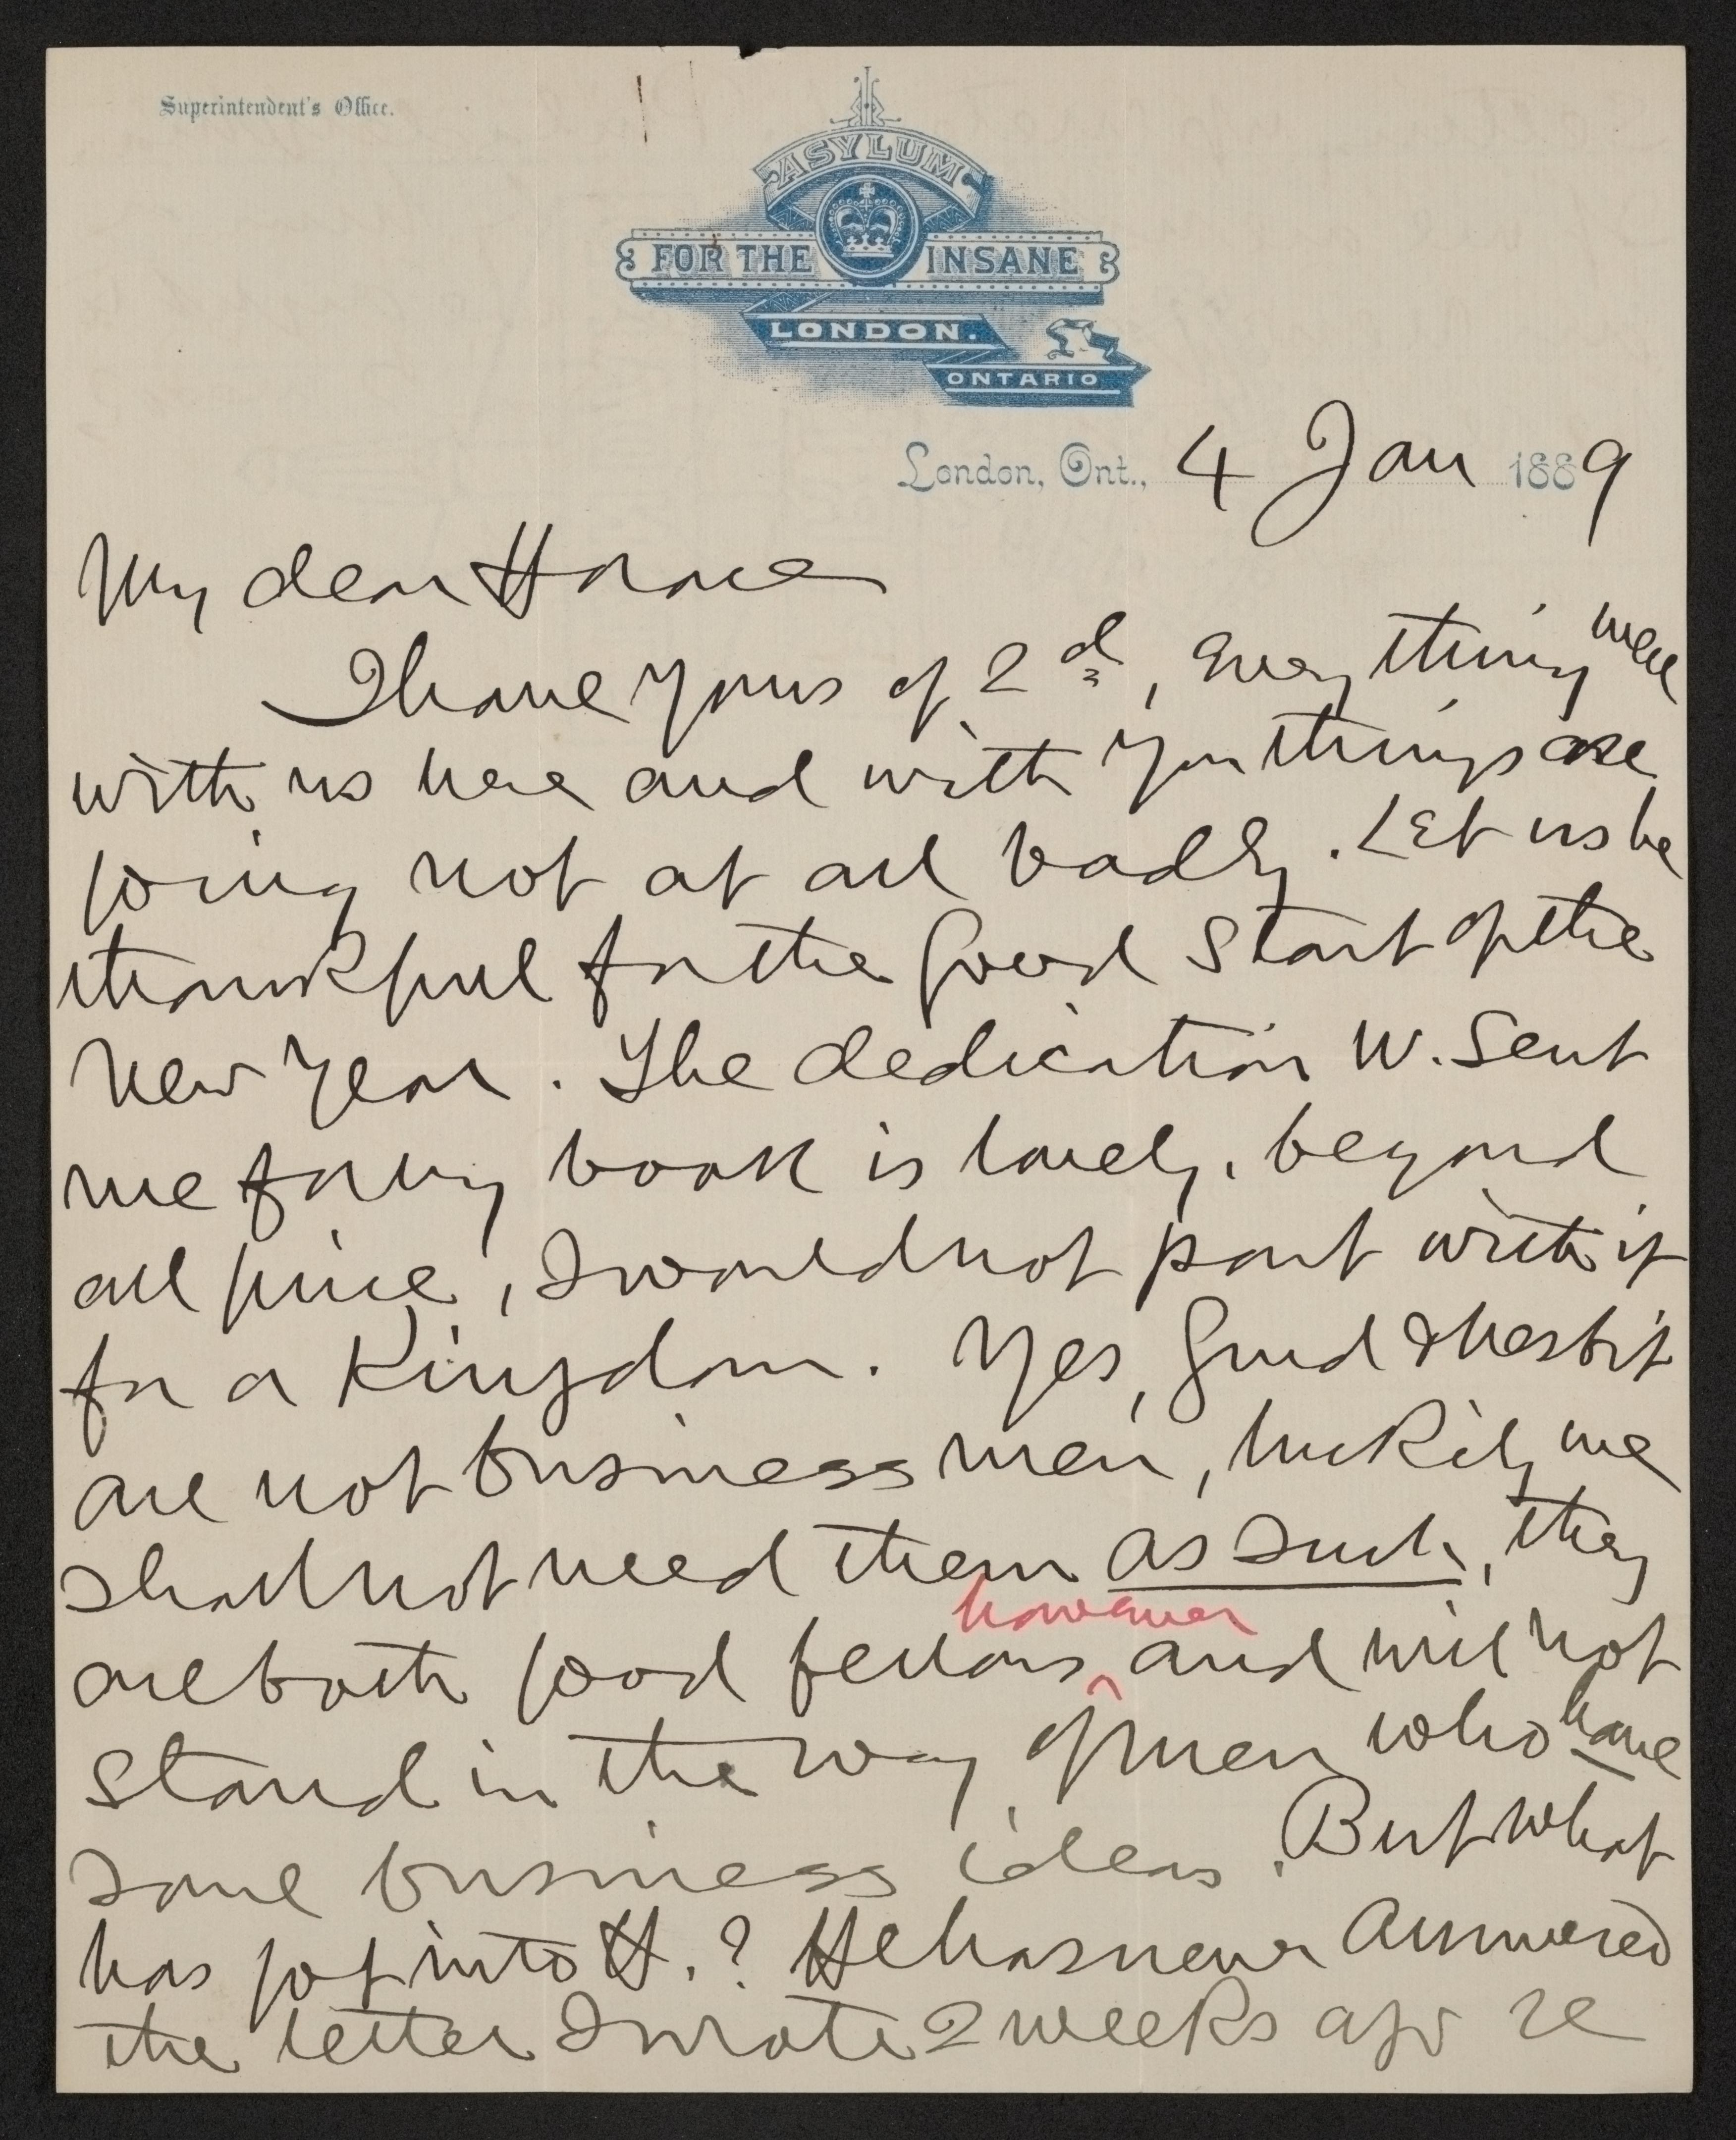 Superintendent's Office.
ASYLUM
FOR THE INSANE
LONDON.
ONTARIO
London, Ont., 4 Jan 1889
My dear Horace
I have yours of 2d, Everything well
with us here and with you things are
going not at all badly. Let us be
thankful for the good start of the
New Year. The dedication W. sent
me for my book is lovely, beyond
all price, I would not part with it
for a Kingdom. Yes, Gurd & Nesbit
are not business men, luckily we
shall not need them as such, they
are both good fellows however and will not
stand in the way of men who have
some business ideas. But what
has got into H.? He has never answered
the letter I wrote 2 weeks ago re